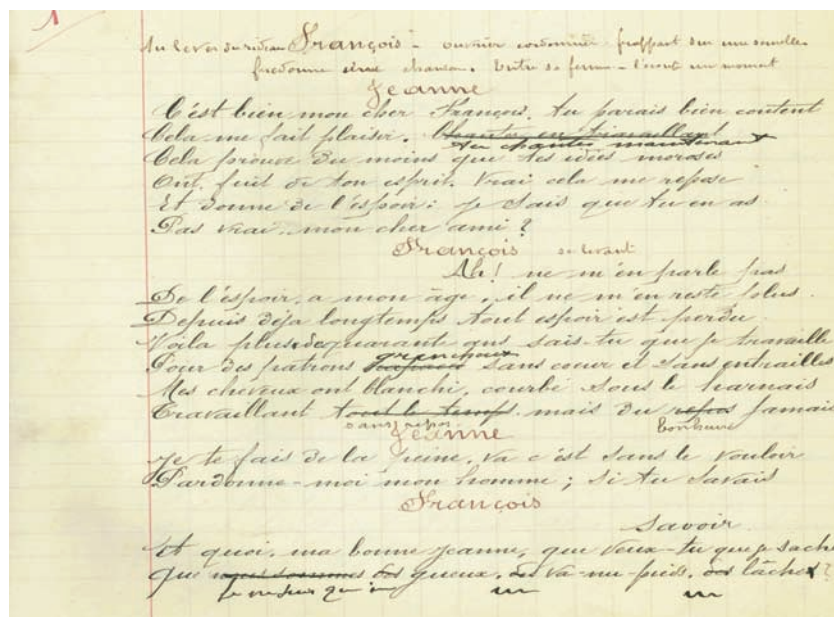 1
Au lever du rideau François - ouvrier cordonnier frappant sur une semelle
fredonne une chanson. Entre sa femme - l'écoute un moment
Jeanne
C'est bien mon cher François. tu parais bien content
Cela me fait plaisir. Chanter en travaillant
tu chantes maintenant
Cela prouve du moins que tes idées moroses
Ont fuit de ton esprit. Vrai cela me repose
Et donne de l'espoir : je sais que tu en as
Pas vrai. mon cher ami ?
François se levant
Ah ! ne m'en parle pas
De l'espoir. a mon âge, il ne m'en reste plus.
Depuis déja longtemps tout espoir est perdu
Voila plus de quarante ans sais-tu que je travaille
grincheux
Pour des patrons sans coeur et sans entrailles
Mes cheveux ont blanchi, courbé sous le harnais
Travaillant tout le temps. mais du repos jamais
sans repos bonheur
Jeanne
Je te fais de la peine. va c'est sans le vouloir
Pardonne-moi mon homme ; si tu savais
François
savoir
Et quoi. ma bonne Jeanne, que veux-tu que je sache
Que nous sommes des gueux. des va-nu-pieds. des lâches ?
je ne suis qu'un